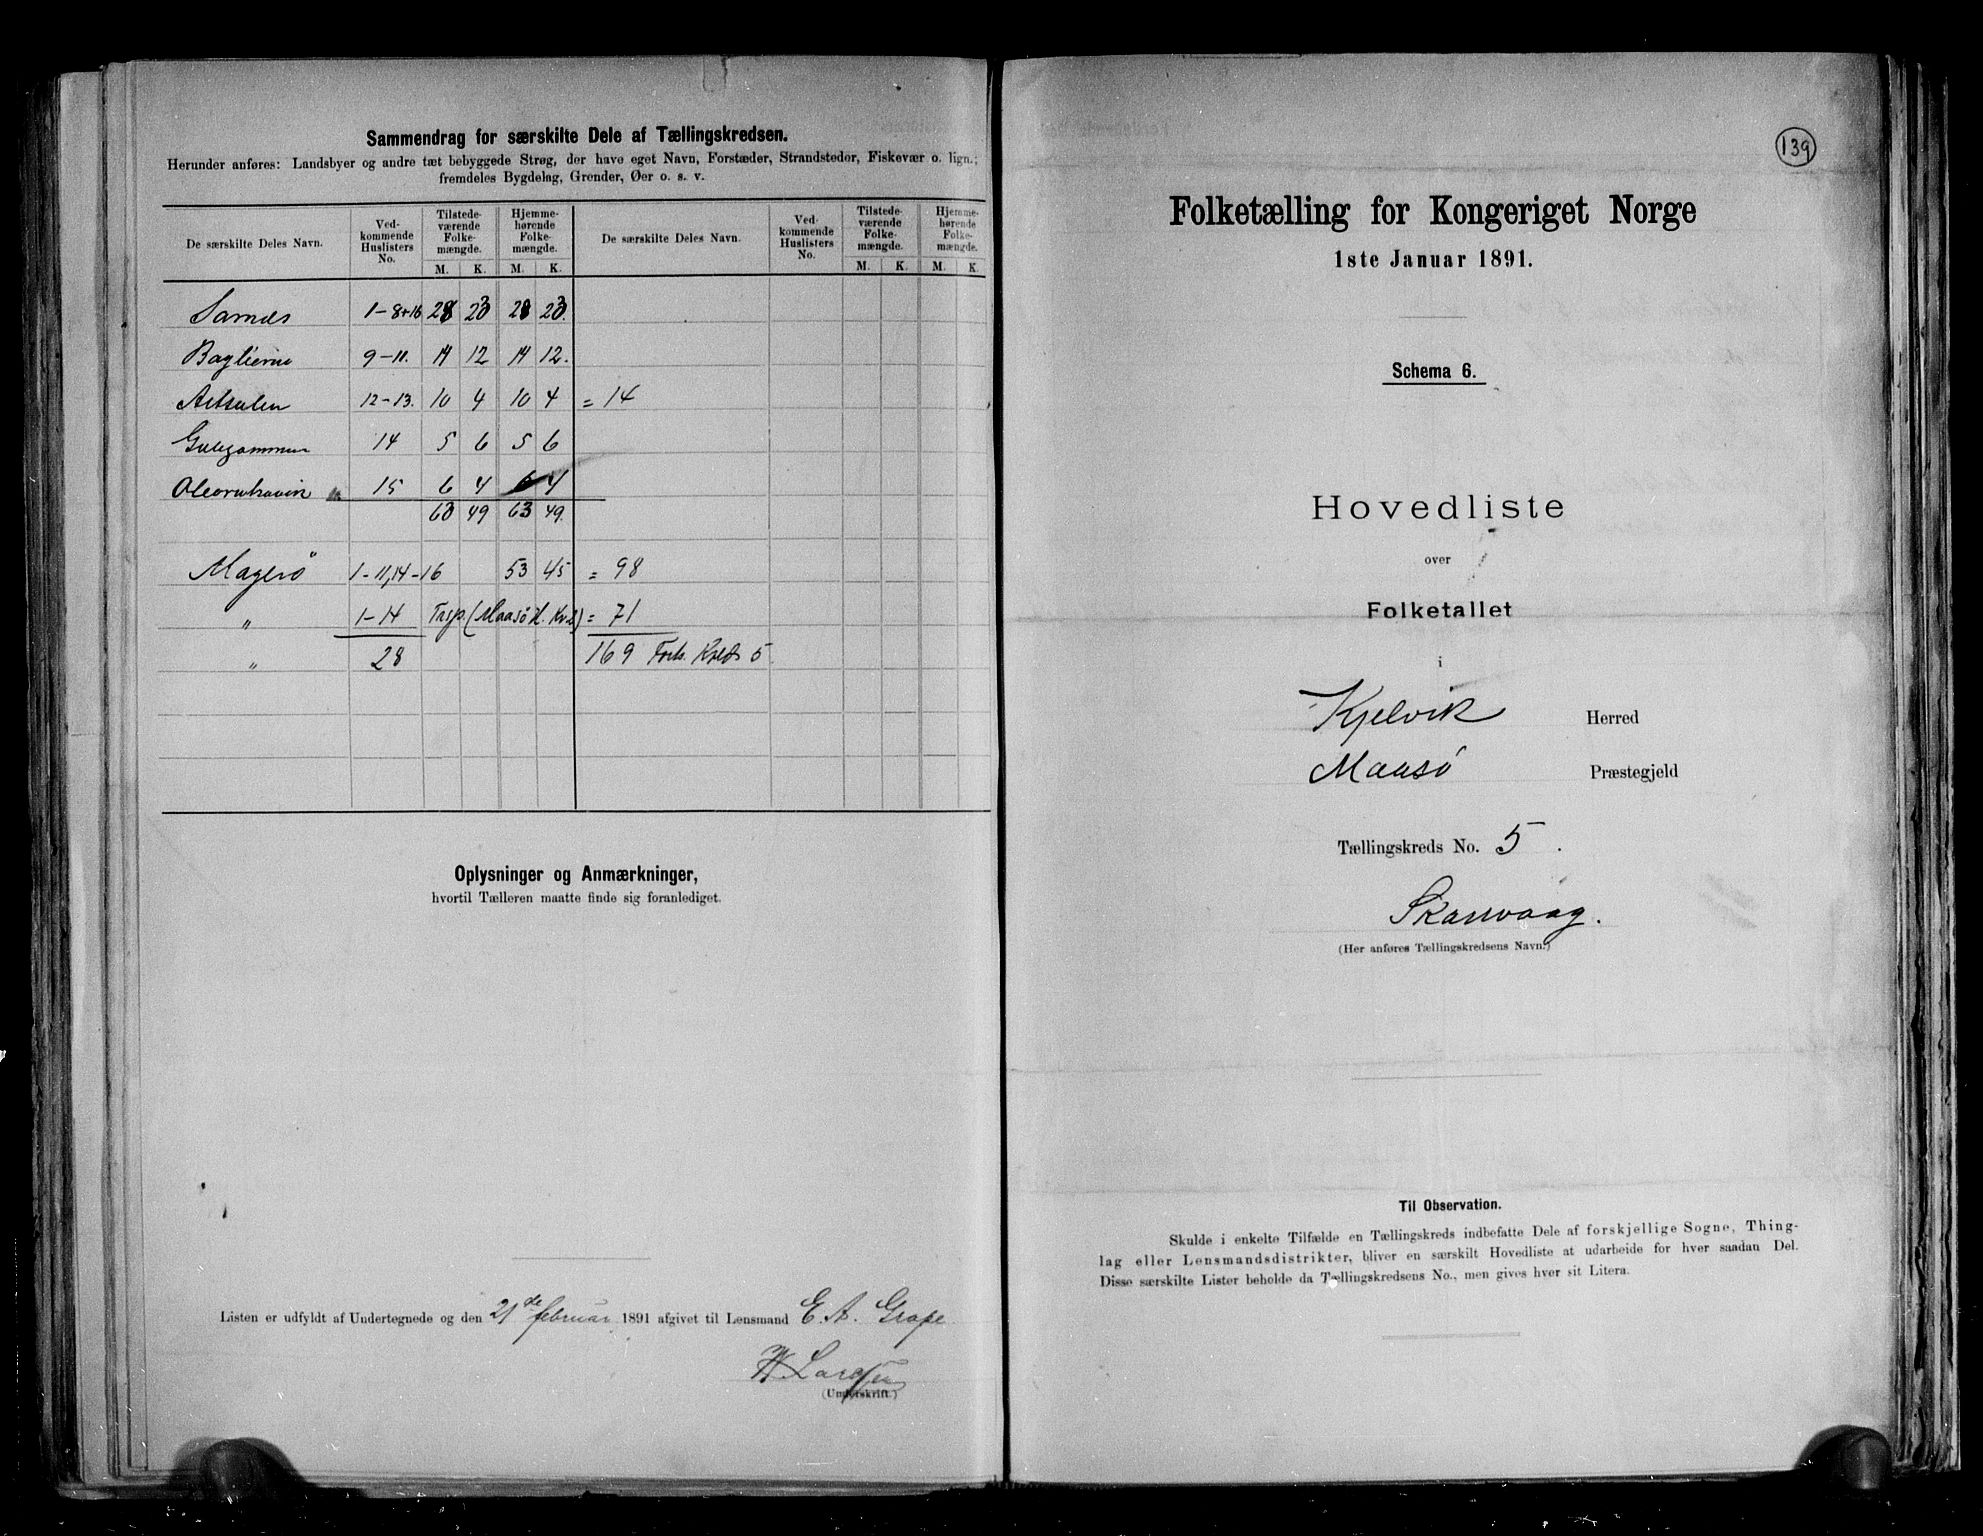 Sammendrag for særskilte Dele af Tællingskredsen.
Herunder anføres: Landsbyer og andre tæt bebyggede Strøg, der have eget Navn, Forstæder, Strandsteder, Fiskevær o. lign.;
fremdeles Bygdelag, Grender, Øer o. s. v.
De særskilte Deles Navn. Ved-kommende Huslisters No. Tilstede-værende Folke-mængde. Hjemme-hørende Folke-mængde. De særskilte Deles Navn. Ved-kommende Huslisters No. Tilstede-værende Folke-mængde. Hjemme-hørende Folke-mængde.
M. K. M. K. M. K. M. K.
Sarnæs 1-8+16 28 23 28 23.
9-11. 14 12 14 12.
12-13. 10 4 10 4 = 14
14 5 6 5 6
15 6 4 6 4
63 49 63 49.
Magerø 1-11,14-16 53 45 = 98
" 1-14 (Maasø H. Kr.2) = 71
" 28 169 5
Oplysninger og Anmærkninger,
hvortil Tælleren maatte finde sig foranlediget.
Listen er udfyldt af Undertegnede og den 21de februar 1891 afgivet til Lensmand E. A. Grape
Larssen
(Underskrift.)
139
Folketælling for Kongeriget Norge
1ste Januar 1891.
Schema 6.
Hovedliste
over
Folketallet
i
Kjelvik Herred
Maasø Præstegjeld
Tællingskreds No. 5.
Skarsvaag.
(Her anføres Tællingskredsens Navn.)
Til Observation.
Skulde i enkelte Tilfælde en Tællingskreds indbefatte Dele af forskjellige Sogne, Thing-
lag eller Lensmandsdistrikter, bliver en særskilt Hovedliste at udarbeide for hver saadan Del.
Disse særskilte Lister beholde da Tællingskredsens No., men gives hver sit Litera.